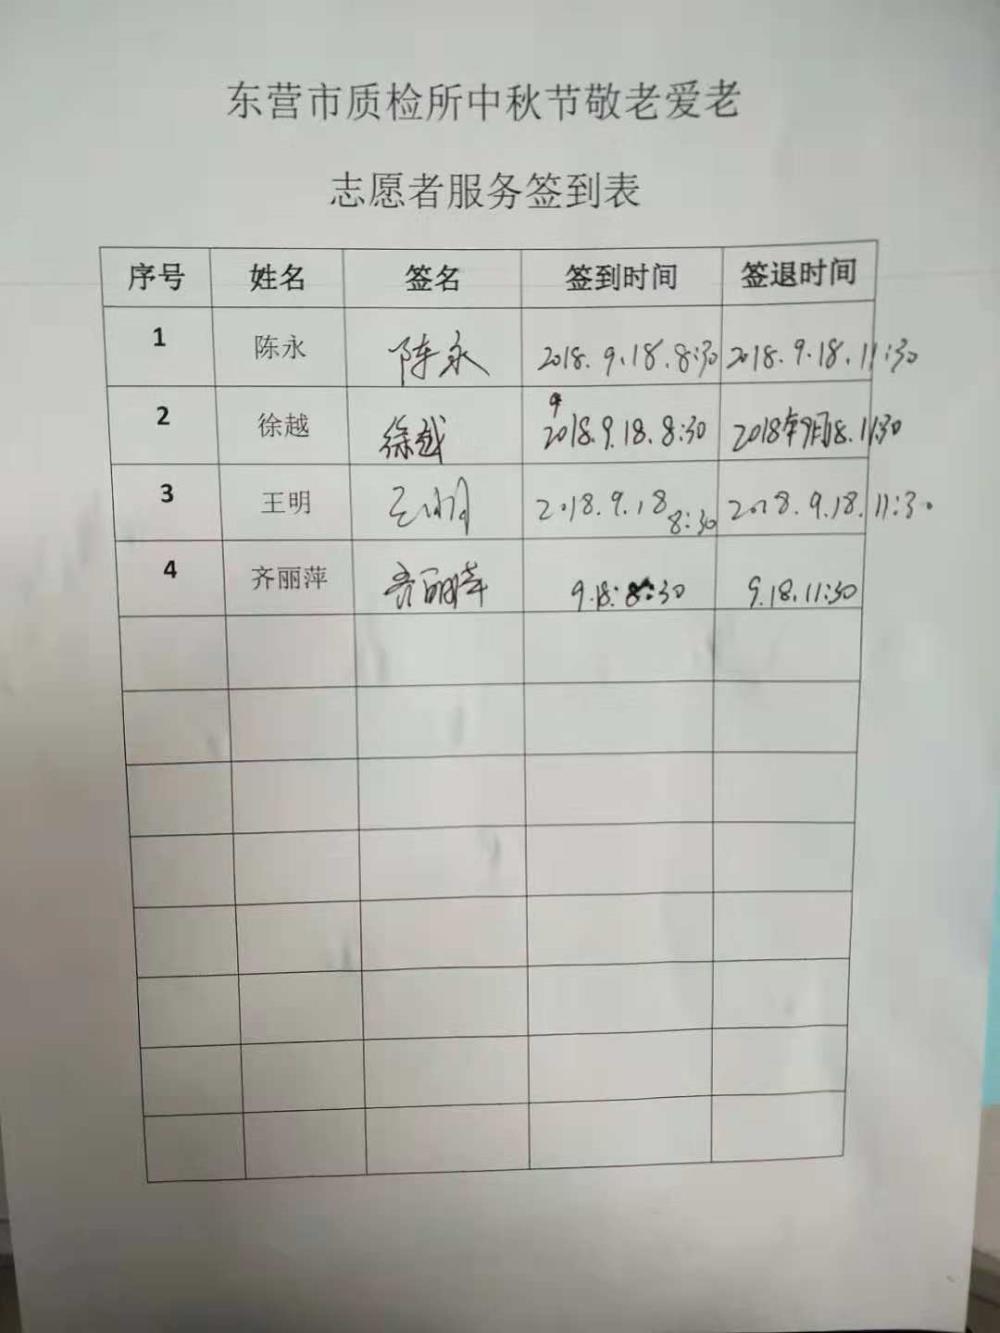 东营市质检所中秋节敬老爱老
志愿者服务签到表
序号 姓名 签名 签到时间 签退时间
1 陈永 陈永 2018.9.18.8:30 2018.9.18.11:30
2 徐越 徐越 2018.9.18.8:30 2018年9月18.11:30
3 王明 王明 2018.9.18 8:30 2018.9.18.11:30
4 齐丽萍 齐丽萍 9.18:8:30 9.18.11:30